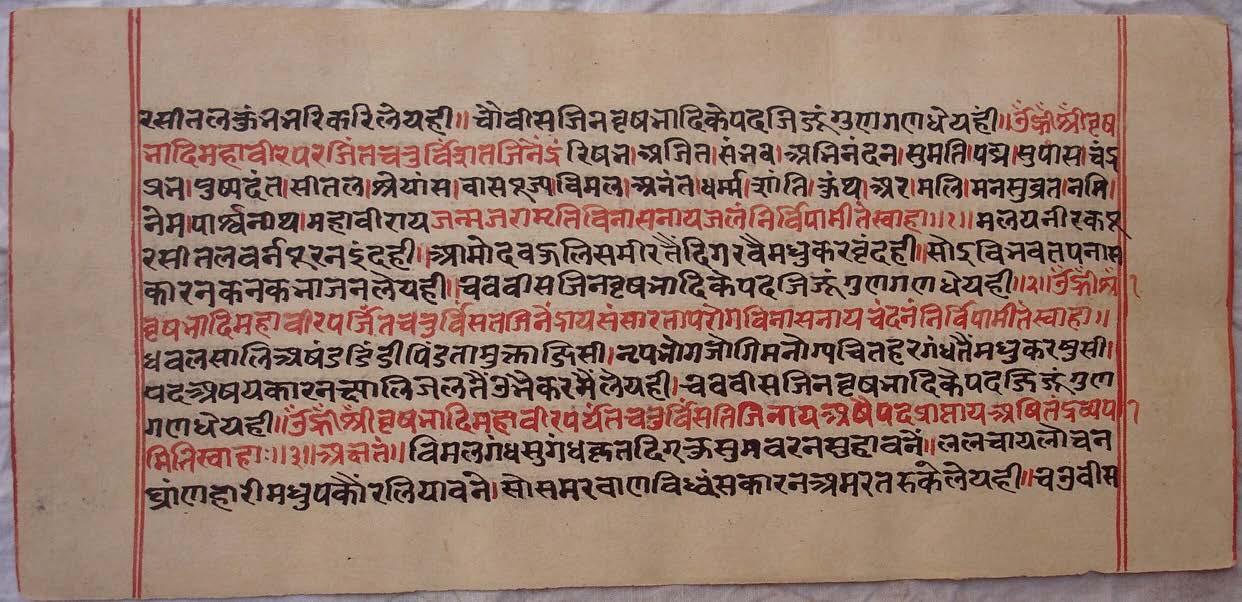 रसीतलकुंभभरिकरिलेयही॥ चौवीसजिनवृषभादिकेपदजिजूंगुणगणधेयंही॥ ॐह्रीँश्रीँवृष
भादिमहावीरपरजिंतचतुर्विंशतिजिनेंद्रं रिषभ।अजित।संभव।अभिनंदन।सुमति।पद्म।सुपास।चंद्र
प्रभ।पुष्पदंत।सीतल।श्रेयांस।वासपूज्य।विमल।अनंत।धर्म्म।शांति।कुंथु।अर।मलि।मनसुव्रत।नमि।
नेम।पार्श्वनाथ।महावीरायजन्मजरामृतिविनासनायजलंनिर्विपामीतेस्वाहा॥१॥ मलयनीरकपू
रसीतलवर्नपूरनइंदही॥आमोदवज्रलिसमीरतैदिगरवैमधुकरवृंदही॥सोऽविभवतपनास
कारनकनकभाजनलेयही॥चववीसजिनवृषभादिकैपदजिजूंगुणगणधेयही॥२॥ॐह्रीँश्रीँ
वृषभादिमहावीरपर्जिंतचतुर्विंसतजिनेंद्रायसंसारतापरोगविनासनायचंदनंनिर्विपामीतेस्वाहा॥
धवलसालिअषंडडिंडीपिंडतामुक्ताजिसी।नृपभोगजोगिमनोग्यचितहरगंधतैंमधुकरषुसी।
पदअषयकारनक्षालिजलतैंउभैकरमैंलैयही।चववीसजिनवृषभादिकैपदजिजूंगुण
गणधेयही॥ॐह्रीँश्रीँवृषभादिमहावीरपर्यंतचतुर्विंसतिजिनायअषैपदप्राप्तायअषितंद्रव्यप
मितिस्वाहाः॥३॥अक्षतं॥ विमलगंधसुगंधकृतदिगकुसुमवरनसुहावनें॥ललचायलोचन
घ्रांणहारीमधुपकौंरलियावने।सोसमरवाणविध्वंसकारनअमरतरुकेलेयही॥चउवीस